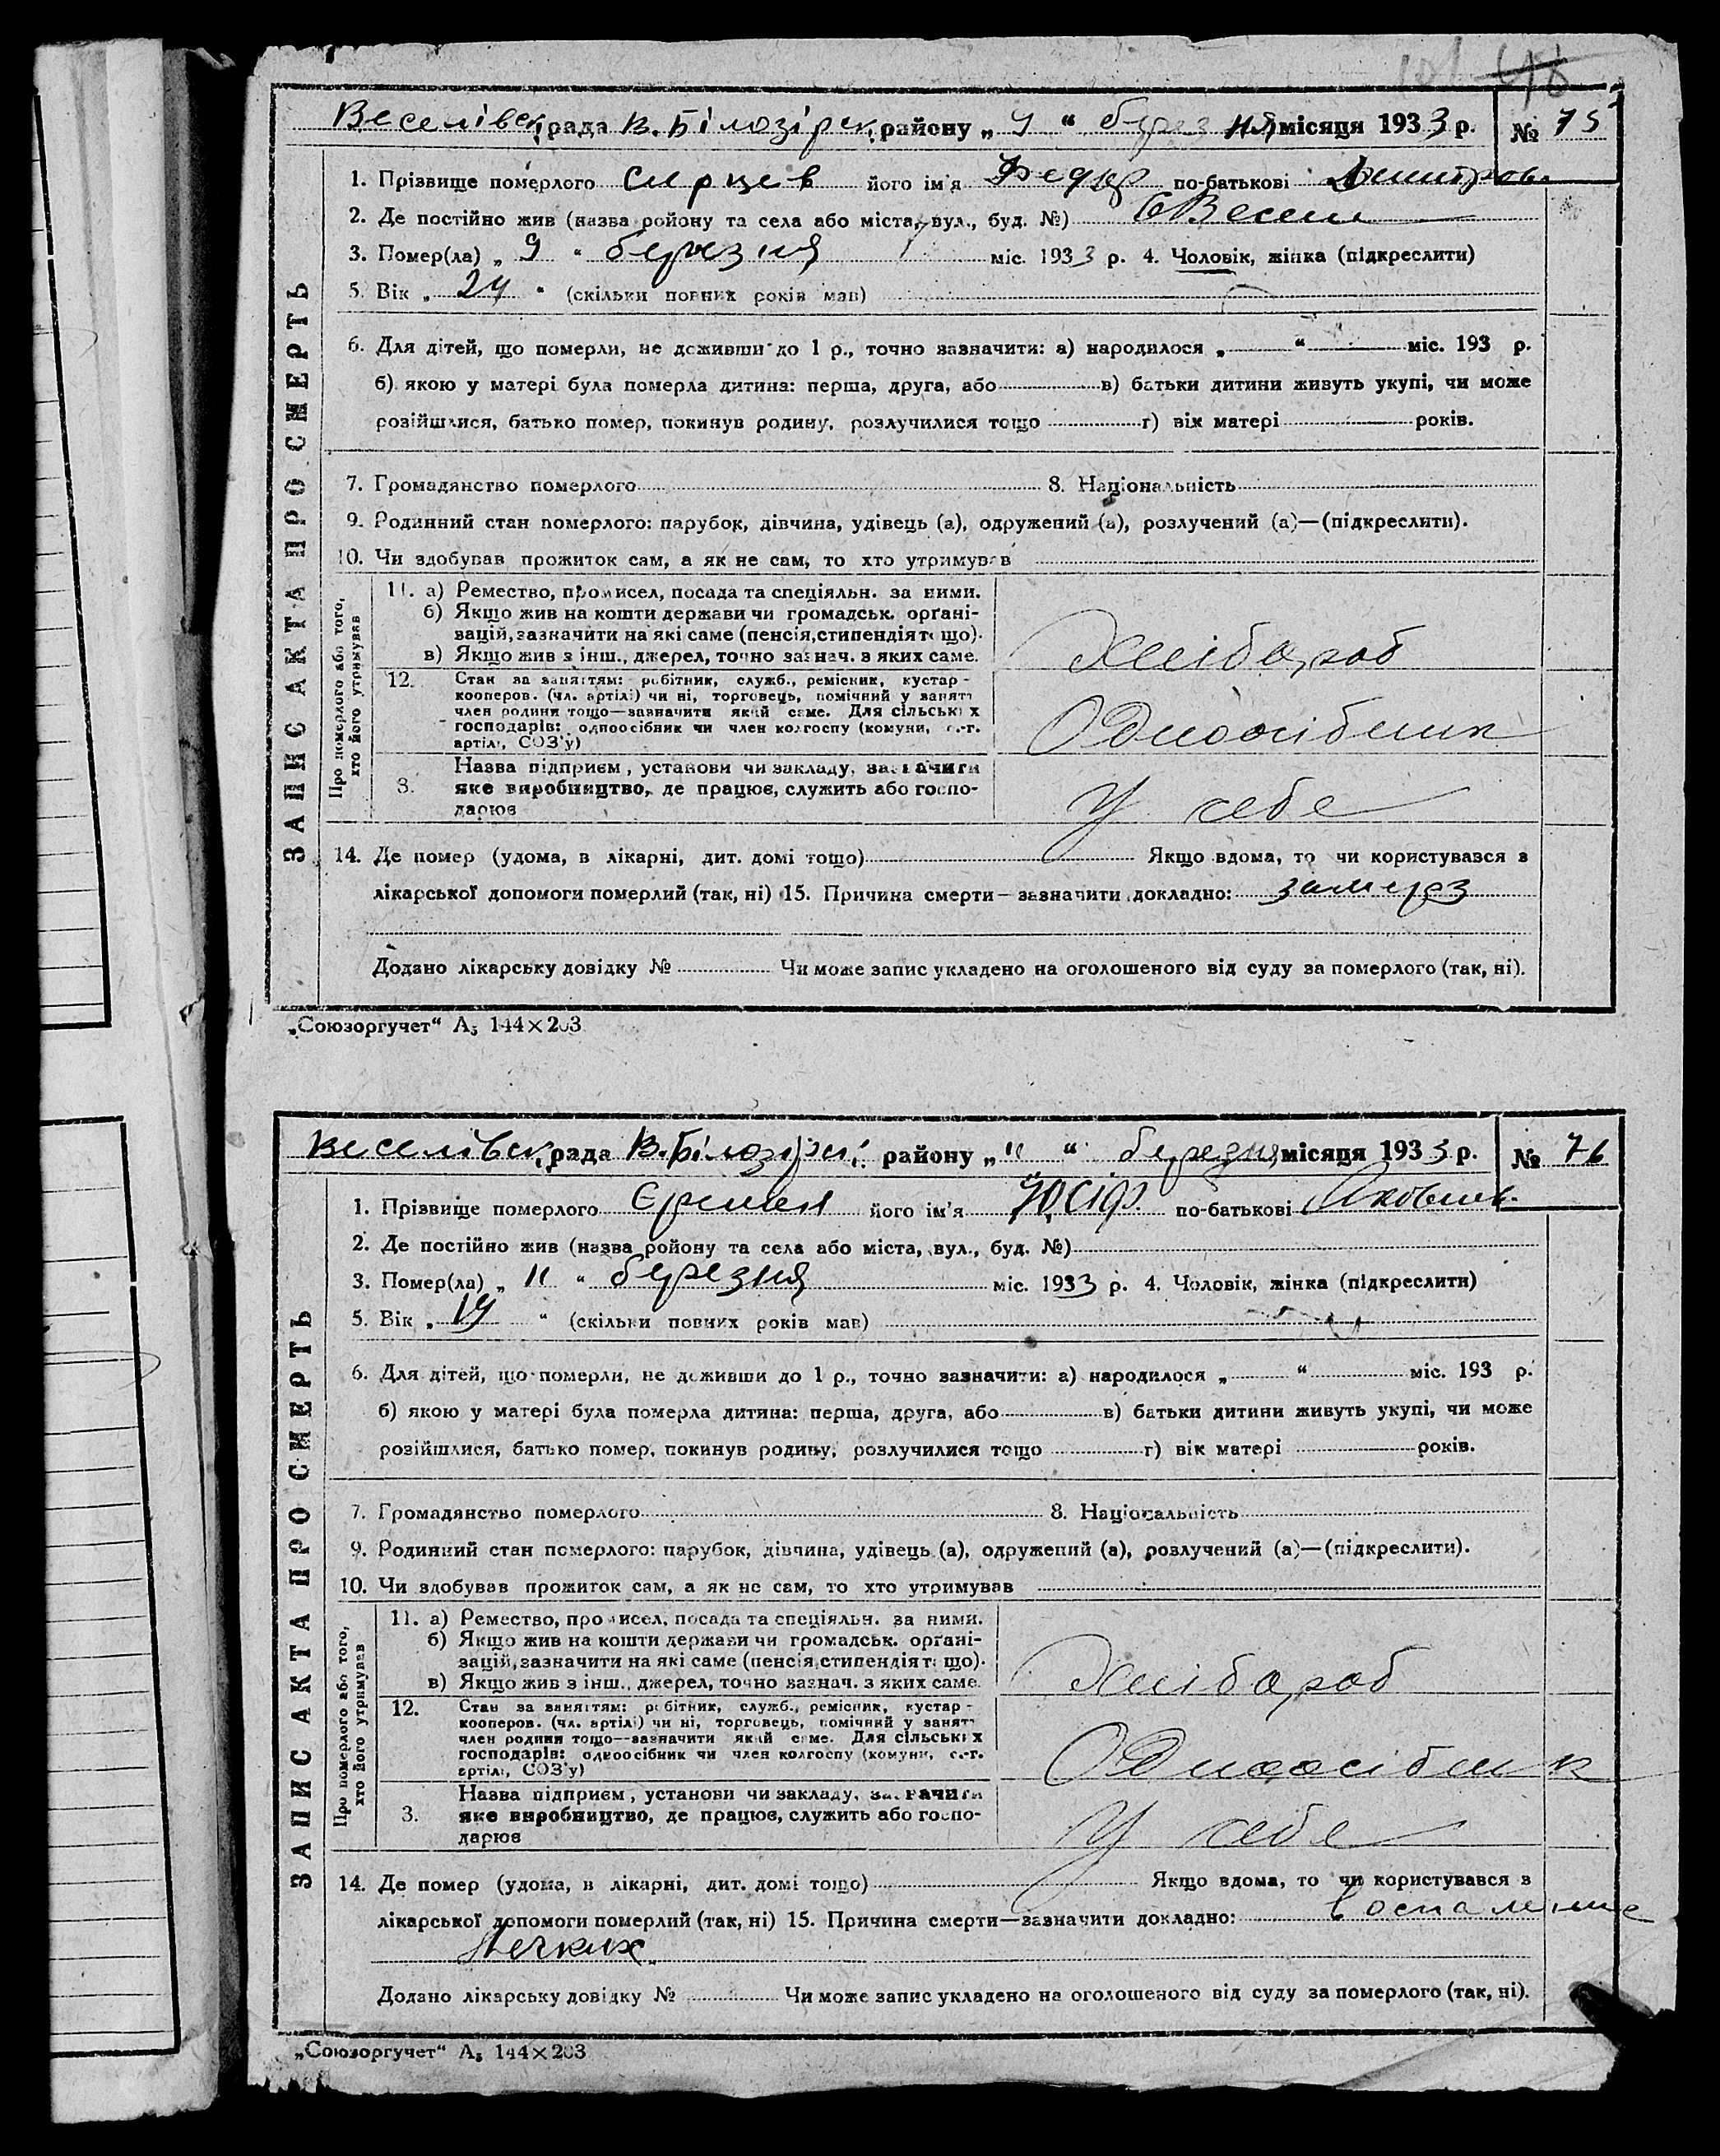 101 48
Веселівськ. рада В. Білозірськ. району „ 9 “ березня місяця 1933 р. № 75
1. Прізвище померлого Сирцев його ім'я Федір по-батькові Дмитров.
2. Де постійно жив (назва ройону та села або міста, вул., буд. №) с Весели
3. Помер(ла) „ 9 “ березня міс. 1933 р. 4. Чоловік, жінка (підкреслити)
5. Вік „ 24 “ (скільки повних років мав)
6. Для дітей, що померли, не доживши до 1 р., точно зазначити: а) народилося „ “ міс. 193 р.
б) якою у матері була померла дитина: перша, друга, або в) батьки дитини живуть укупі, чи може
розійшлися, батько помер, покинув родину, розлучилися тощо г) вік матері років.
7. Громадянство померлого 8. Національність
9. Родинний стан померлого: парубок, дівчина, удівець (а), одружений (а), розлучений (а)—(підкреслити).
10. Чи здобував прожиток сам, а як не сам, то хто утримував
ЗАПИС АКТА ПРО СМЕРТЬ
Про померлого або того, хто його утримував
11. а) Ремество, промисел, посада та спеціяльн. за ними.
б) Якщо жив на кошти держави чи громадськ. орґані-
зацій, зазначити на які саме (пенсія, стипендія тощо).
в) Якщо жив з інш., джерел, точно зазнач. з яких саме.
Хлібороб
12. Стан за заняттям: робітник, служб., ремісник, кустар-
кооперов. (чл. артілі) чи ні, торговець, помічний у занятт
член родини тощо—зазначити який саме. Для сільських
господарів: одноосібник чи член колгоспу (комуни, с.-г.
артілі, СОЗ'у)
Одноосібник
3. Назва підприєм, установи чи закладу, зазначити
яке виробництво, де працює, служить або госпо-
дарює
У себе
14. Де помер (удома, в лікарні, дит. домі тощо) Якщо вдома, то чи користувався з
лікарської допомоги померлий (так, ні) 15. Причина смерти—зазначити докладно: замерз
Додано лікарську довідку № Чи може запис укладено на оголошеного від суду за померлого (так, ні).
„Союзоргучет“ А₅ 144×203
Веселівськ. рада В. Білозірськ. району „ 11 “ березня місяця 1933 р. № 76
1. Прізвище померлого його ім'я Йосип. по-батькові Яковлев.
2. Де постійно жив (назва ройону та села або міста, вул., буд. №)
3. Помер(ла) „ 11 “ березня міс. 1933 р. 4. Чоловік, жінка (підкреслити)
5. Вік „ 19 “ (скільки повних років мав)
6. Для дітей, що померли, не доживши до 1 р., точно зазначити: а) народилося „ “ міс. 193 р.
б) якою у матері була померла дитина: перша, друга, або в) батьки дитини живуть укупі, чи може
розійшлися, батько помер, покинув родину, розлучилися тощо г) вік матері років.
7. Громадянство померлого 8. Національність
9. Родинний стан померлого: парубок, дівчина, удівець (а), одружений (а), розлучений (а)—(підкреслити).
10. Чи здобував прожиток сам, а як не сам, то хто утримував
ЗАПИС АКТА ПРО СМЕРТЬ
Про померлого або того, хто його утримував
11. а) Ремество, промисел, посада та спеціяльн. за ними.
б) Якщо жив на кошти держави чи громадськ. орґані-
зацій, зазначити на які саме (пенсія, стипендія тощо).
в) Якщо жив з інш., джерел, точно зазнач. з яких саме.
Хлібороб
12. Стан за заняттям: робітник, служб., ремісник, кустар-
кооперов. (чл. артілі) чи ні, торговець, помічний у занятт
член родини тощо—зазначити який саме. Для сільських
господарів: одноосібник чи член колгоспу (комуни, с.-г.
артілі, СОЗ'у)
Одноосібник
3. Назва підприєм, установи чи закладу, зазначити
яке виробництво, де працює, служить або госпо-
дарює
У себе
14. Де помер (удома, в лікарні, дит. домі тощо) Якщо вдома, то чи користувався з
лікарської допомоги померлий (так, ні) 15. Причина смерти—зазначити докладно: воспаление
Легких
Додано лікарську довідку № Чи може запис укладено на оголошеного від суду за померлого (так, ні).
„Союзоргучет“ А₅ 144×203